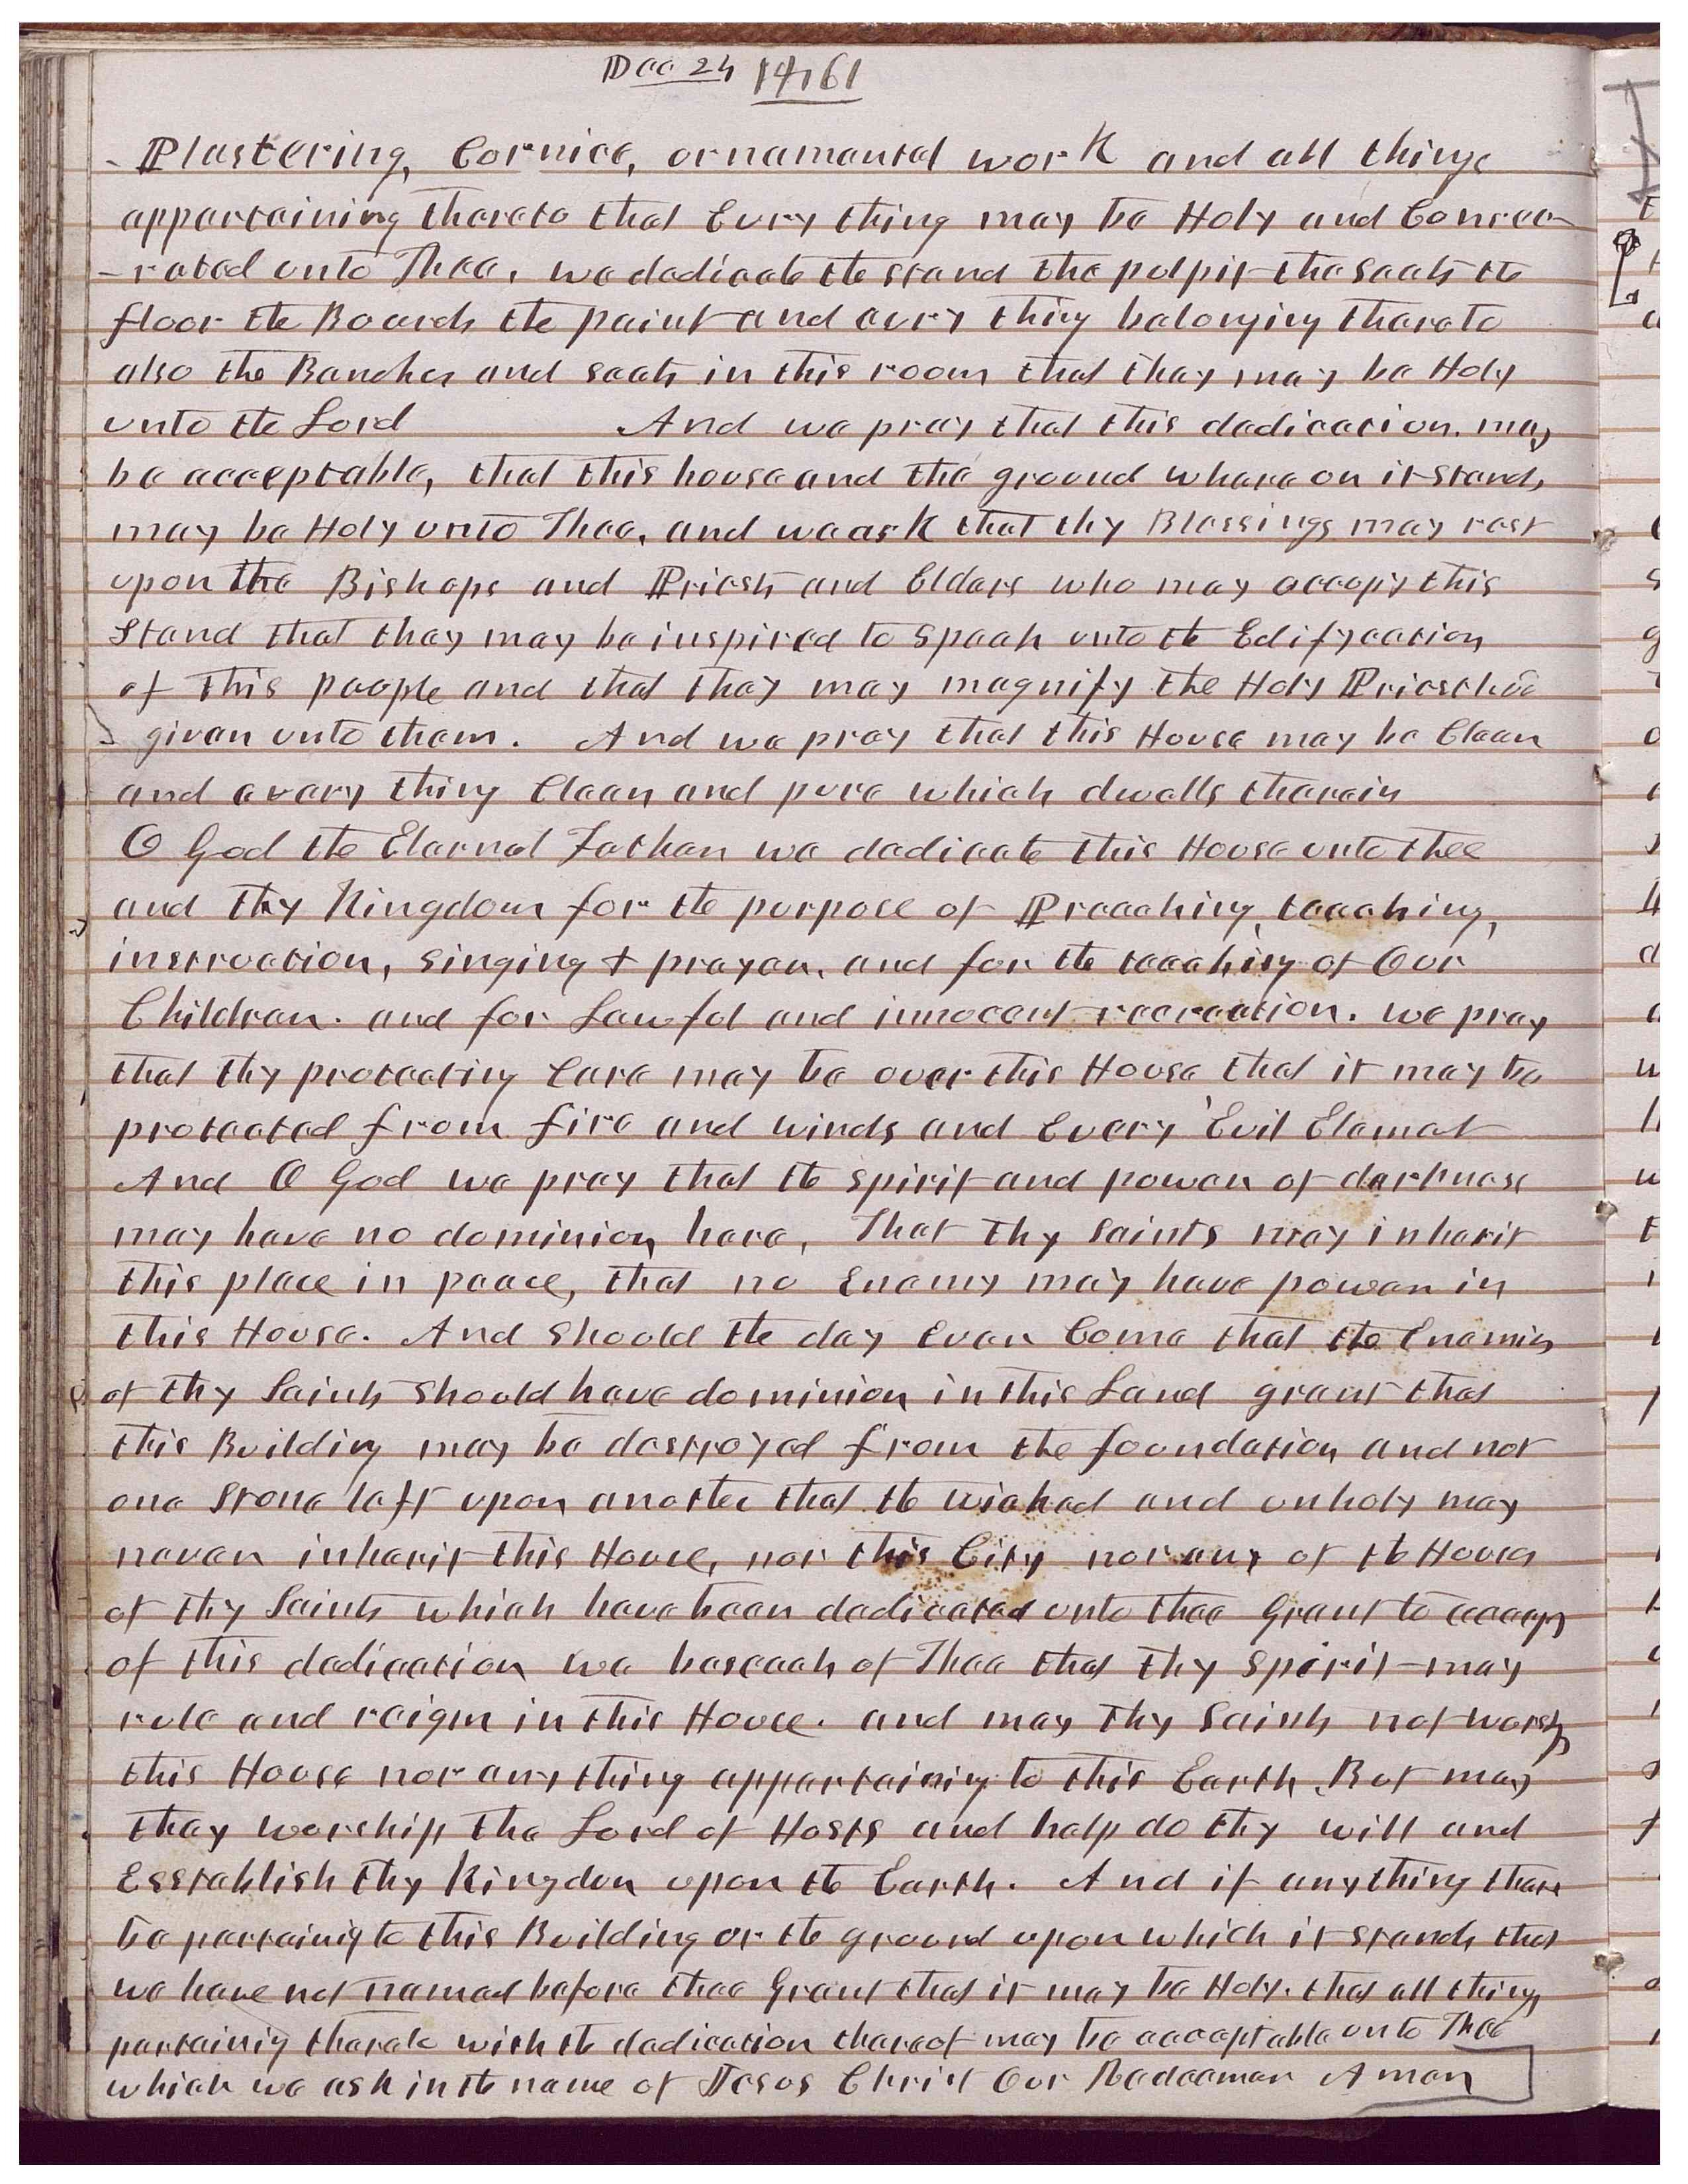 Dec 24 1861
Plastering, Cornice, ornamental work and all things
appertaining thereto that Evry thing may be Holy and Consec-
-rated unto Thee. we dedicate the stand the pulpit the seats the
floor the Boards the paint and evry thing belonging thereto
also the Benches and seats in this room that they may be Holy
unto the Lord And we pray that this dedication. may
be acceptable, that this house and the ground whare on it stands
may be Holy unto Thee, and we ask that thy Blessings may rest
upon the Bishops and Priests and Elders who may occopy this
Stand that they may be inspired to speak unto the Edifycation
of this people and that they may magnify the Holy Priesthood
given unto them. And we pray that this House may be Clean
and every thing Clean and pure which dwells therein
O God the Eternal Father we dedicate this House unto thee
and thy Kingdom for the purpose of Preaching, teaching,
instruction, singing & prayer, and for the teaching of Our
Children. and for Lawful and innocent recreation. we pray
that thy protecting Care may be over this House that it may be
protected from fire and winds and Every Evil Elemet
And O God we pray that the spirit and power of darkness
may have no dominion here, That Thy Saints may inherit
this place in peace, that no Enemy may have power in
this House. And should the day Ever Come that the Enemies
of thy Saints should have dominion in this Land grant that
this Building may be destroyed from the foundation and not
one stone left upon another that the wicked and unholy may
never inherit this House, nor this City nor any of the Houses
of thy Saints which have been dedicated unto thee Grant to accept
of this dedication we beseech of Thee that thy spirit may
rule and reign in this House. and may Thy Saints not worship
this House nor any thing appertaining to this Earth. But may
they worship the Lord of Hosts and help do thy will and
Esstablish thy Kingdom upon the Earth. And if any thing there
be pertainig to this Building or the ground upon which it stands that
we have not named before thee Grant that it may be Holy. that all things
pertainig thereto with the dedication thereof may be acceptable unto Thee
which we ask in the name of Jesus Christ Our Redeemer Amen